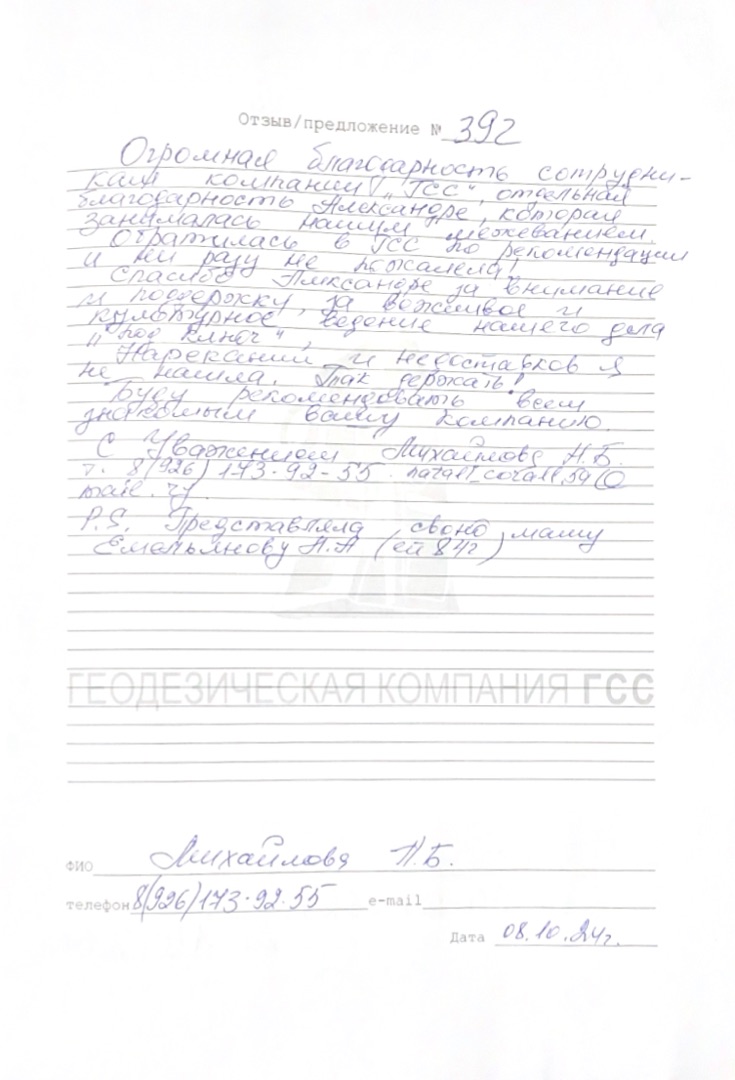 Отзыв/предложение № 392
Огромная благодарность сотрудни-
кам компании "ГСС", отдельная
благодарность Александре, которая
занималась нашим межеванием.
Обратилась в ГСС по рекомендации
и ни разу не пожалела!
Спасибо Александре за внимание
и поддержку, за вежливое и
культурное ведение нашего дела
"под ключ",
Нареканий и недостатков я
не нашла. Так держать!
Буду рекомендовать всем
знакомым вашу компанию.
С Уважением Михайлова Н.Б.
т. 8(926) 173-92-55. natali_corall.59@
mail.ru.
P.S. Представляла свою маму
Емельянову А.А (ей 84г)
ГЕОДЕЗИЧЕСКАЯ КОМПАНИЯ ГСС
ФИО Михайлова Н.Б.
телефон 8(926)173-92-55 e-mail
Дата 08.10.24г.